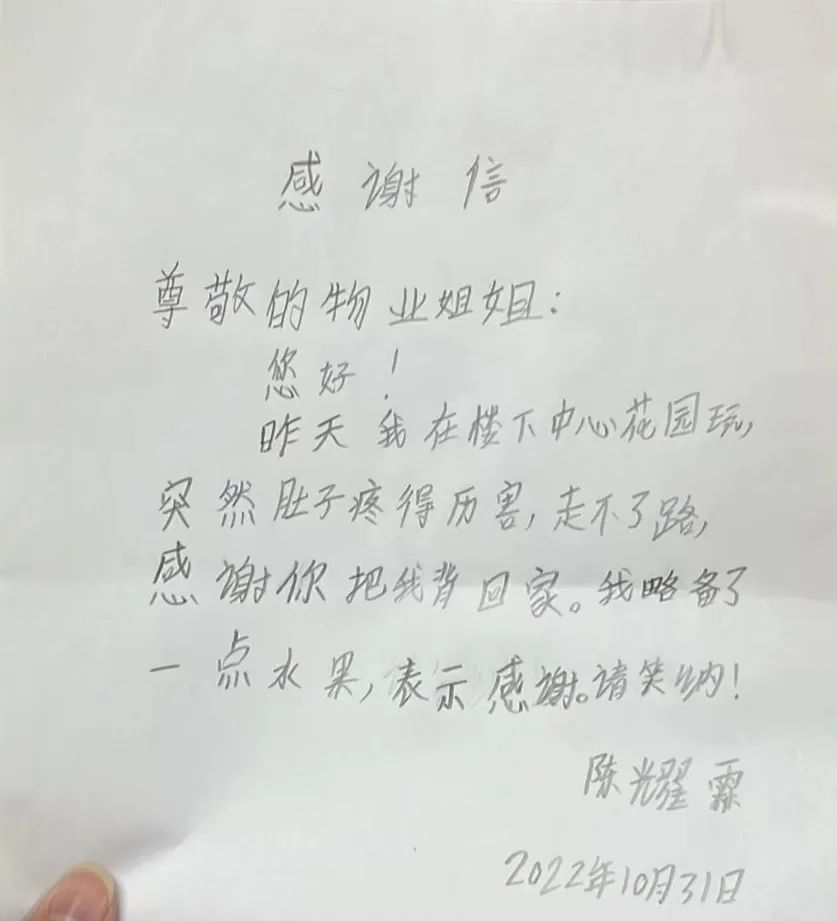 感谢信
尊敬的物业姐姐：
您好！
昨天我在楼下中心花园玩，
突然肚子疼得历害，走不了路，
感谢你把我背回家。我略备了
一点水果，表示感谢。请笑纳！
陈耀霖
2022年10月31日